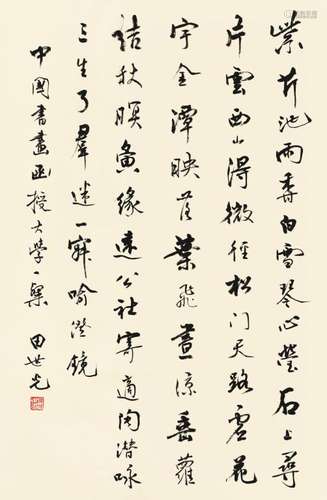 紫芥池雨香白雪琴心莹石上寻
片云西山得微径松门天路虚花
宇金潭映苔叶飞昼凉垂萝
结秋暝夤缘远公社寄适陶潜咏
三生了群迷一寐喻澄镜
中国书画函授大学一集 田世光